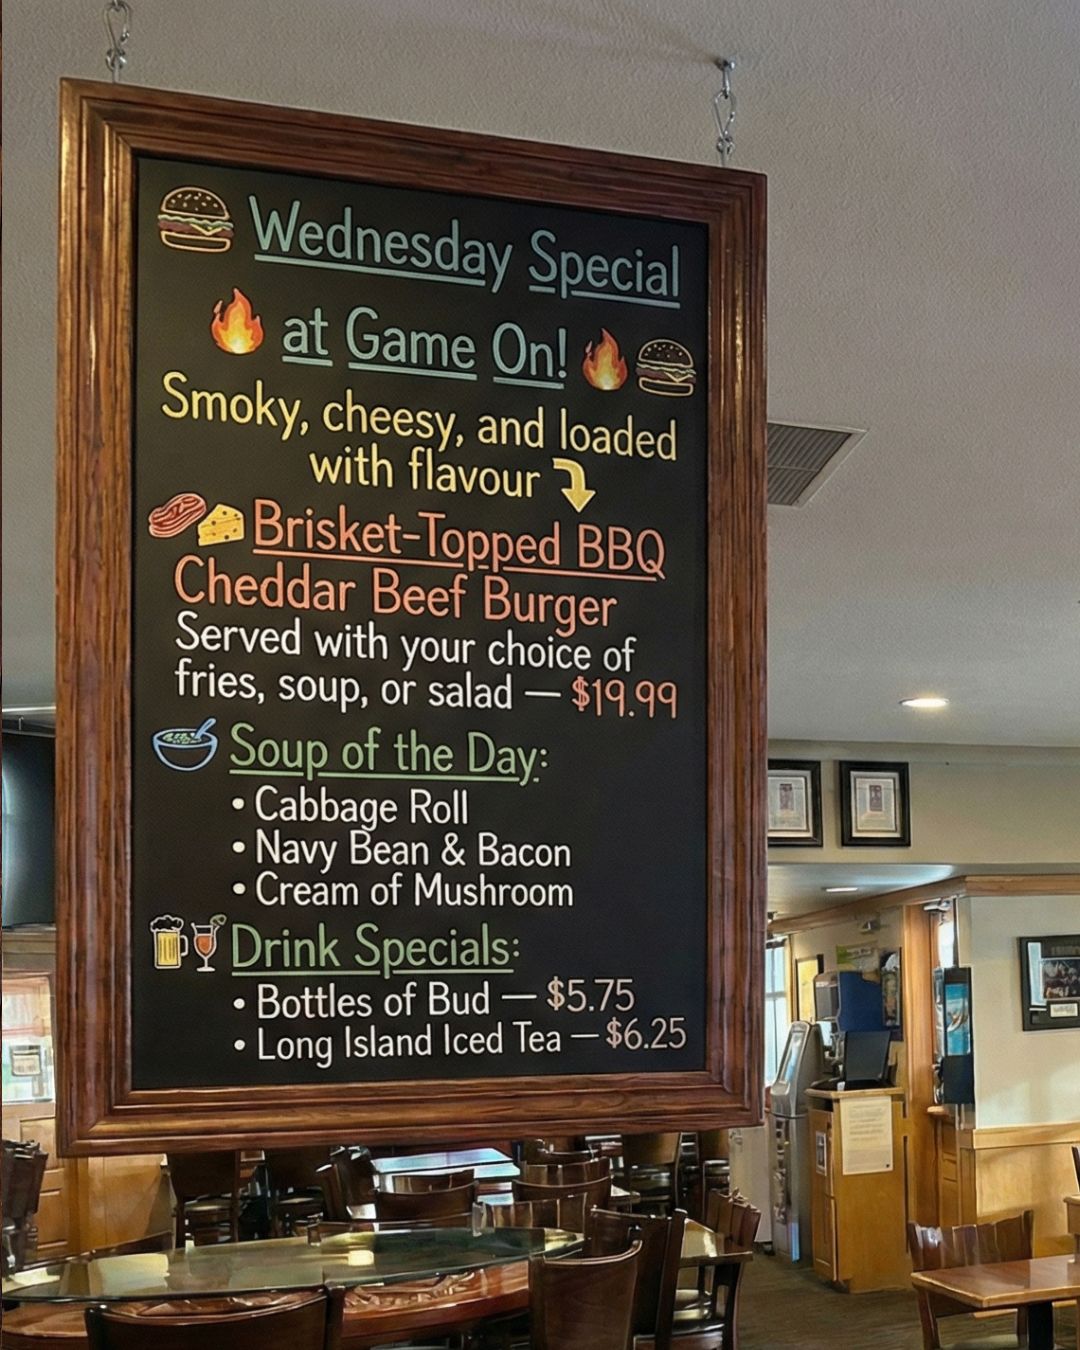 Wednesday Special
at Game On!
Smoky, cheesy, and loaded
with flavour
Brisket-Topped BBQ
Cheddar Beef Burger
Served with your choice of
fries, soup, or salad — $19.99
Soup of the Day:
• Cabbage Roll
• Navy Bean & Bacon
• Cream of Mushroom
Drink Specials:
• Bottles of Bud — $5.75
• Long Island Iced Tea — $6.25